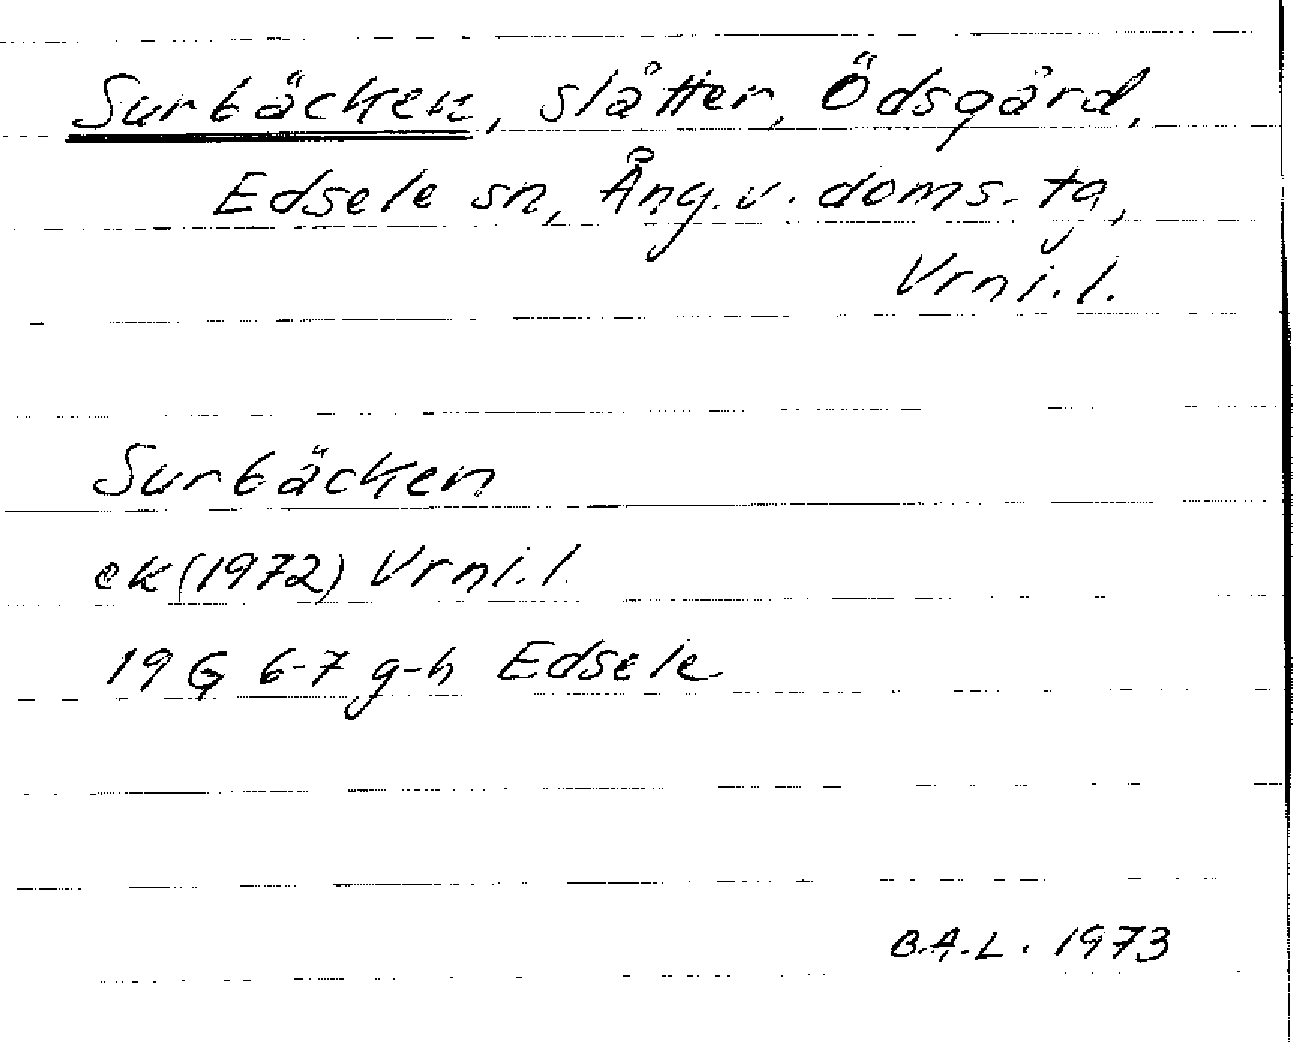 Surbäcken, slåtter, Ödsgård,
Edsele sn, Ång. v. doms. tg,
Vrnl. l.
Surbäcken
ek (1972) Vrnl. l.
19 G 6-7 g-h Edsele
B.A.L. 1973